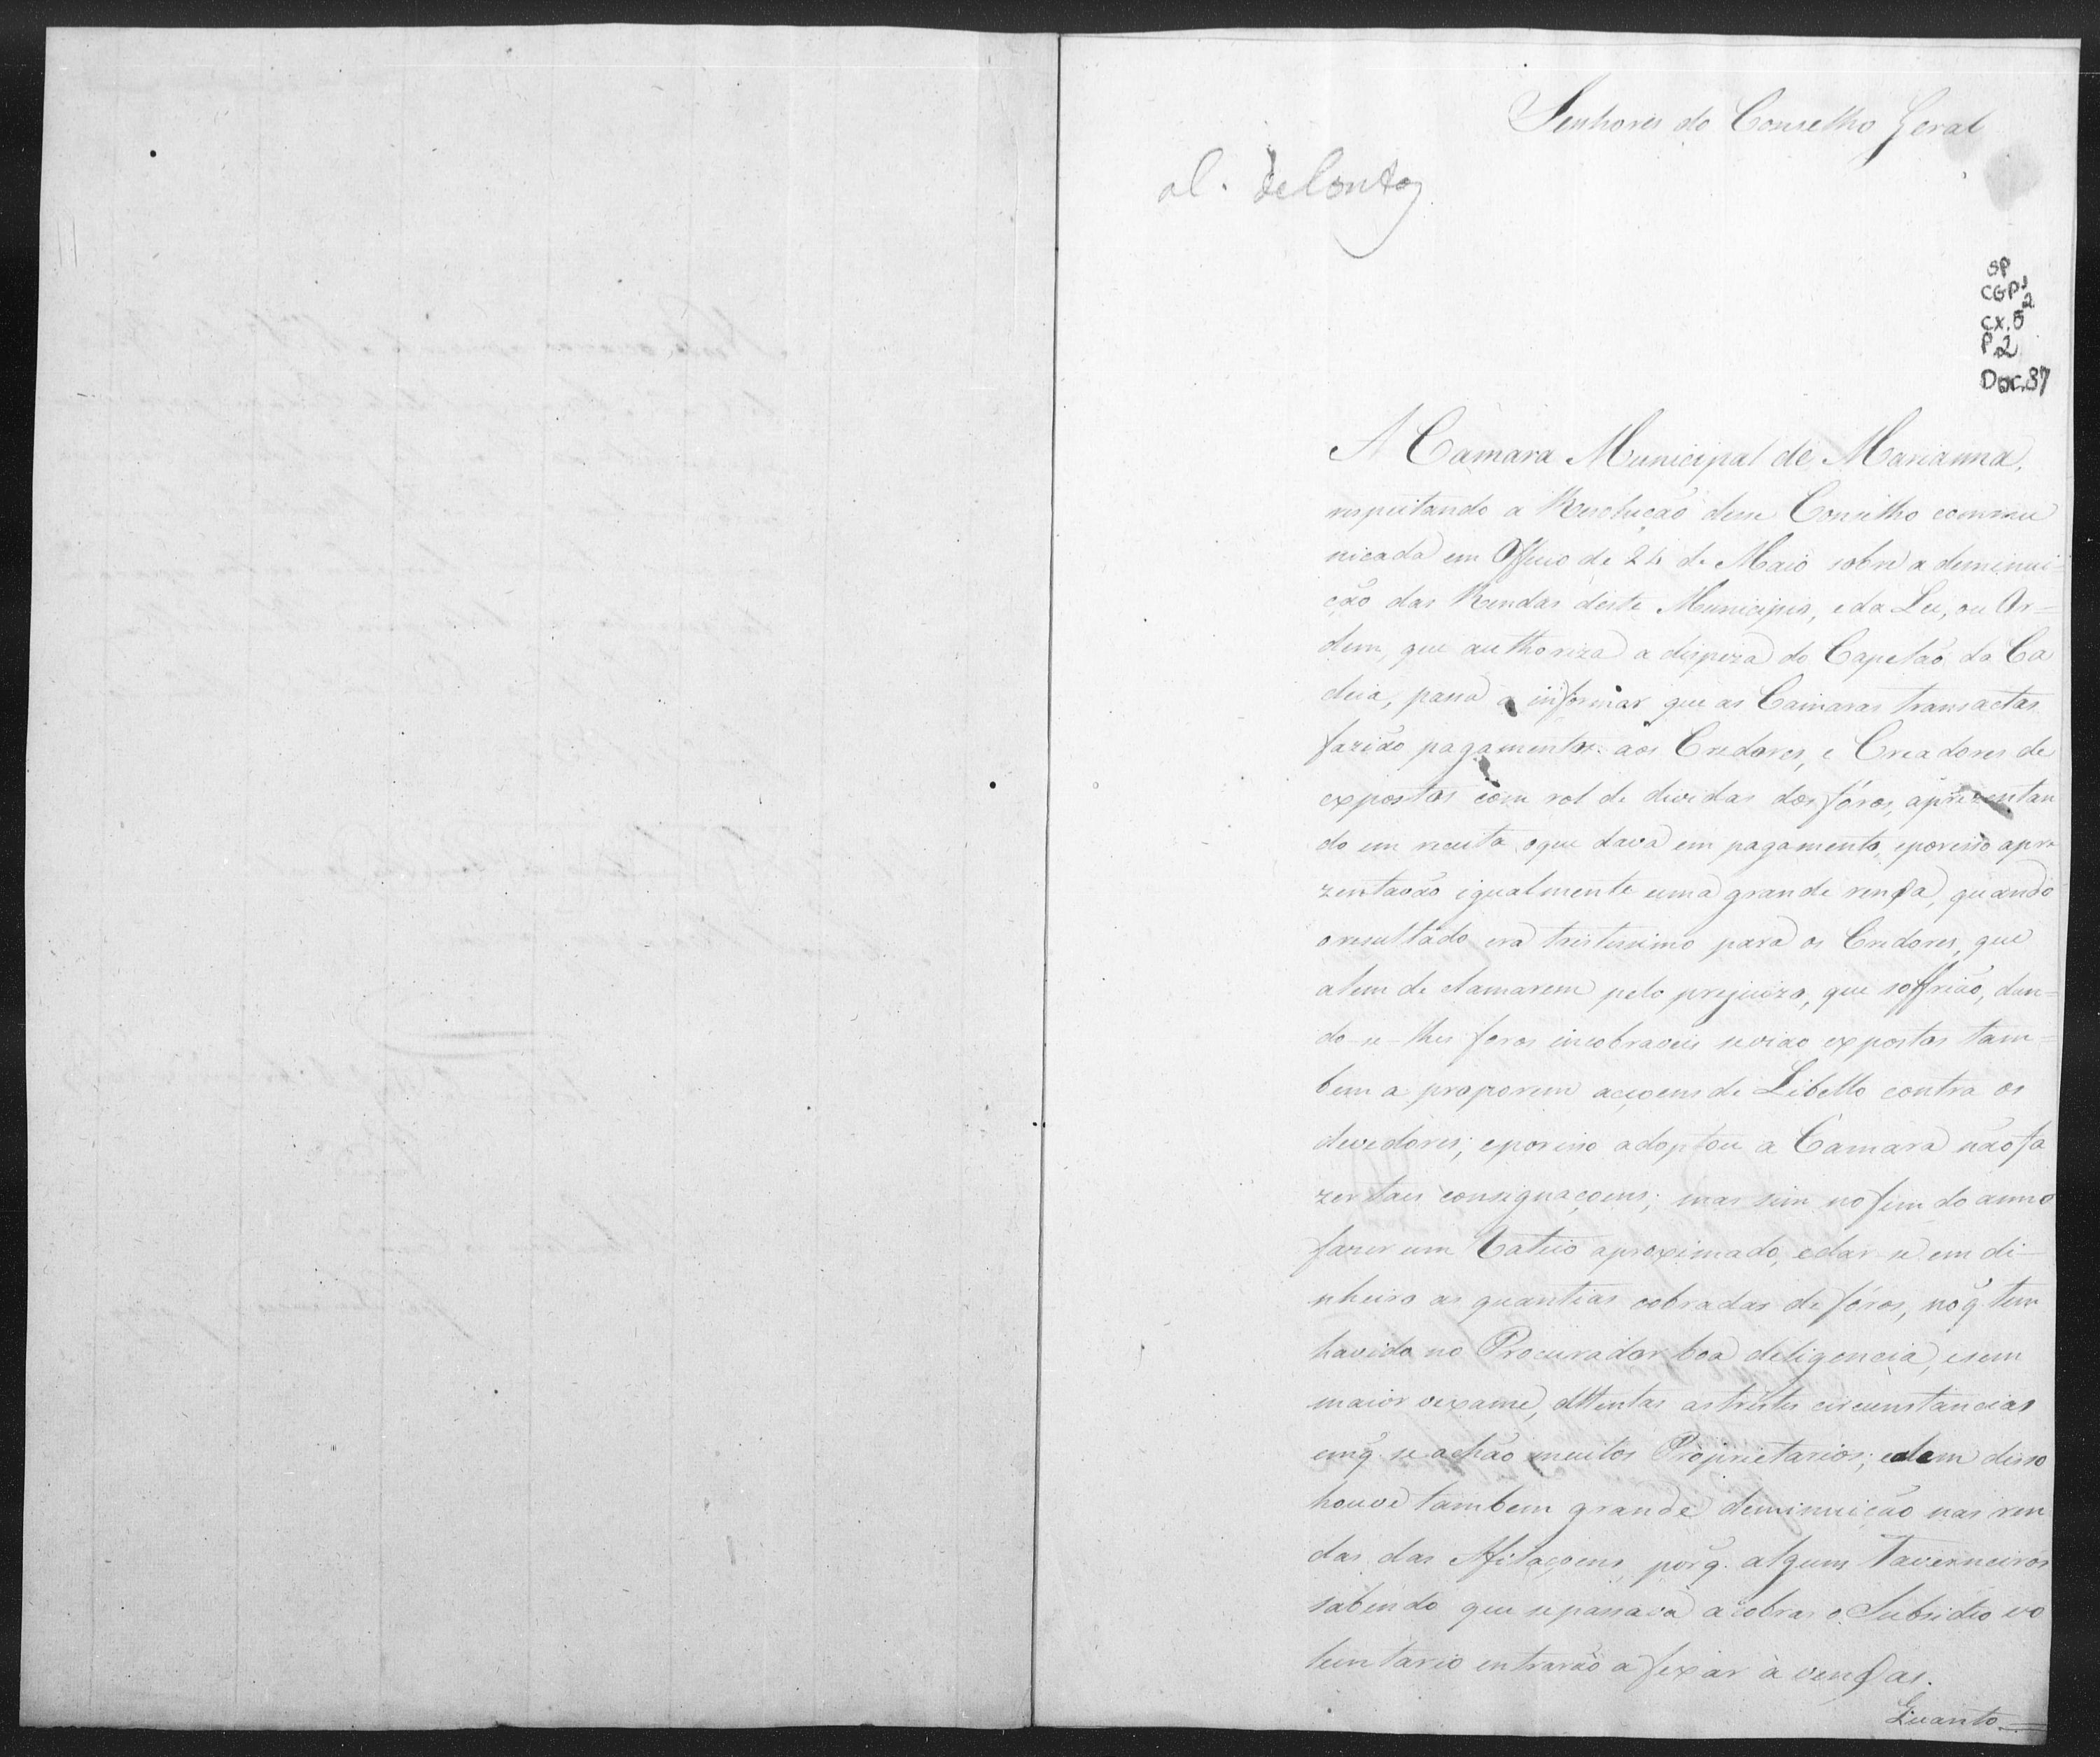 Senhores do Conselho Geral
al. de Contas
SP
CGP1
2
CX. 5
P 2
Doc. 37
A Camara Municipal de Marianna,
respeitando a Resolução desse Conselho commu
nicada em Officio de 24 de Maio sobre a deminui-
ção das Rendas deste Municipio, e da Lei, ou Or=
dem, que authoriza a dispeza do Capelão da Ca
deia, passa a informar que as Camaras transactas
fazião pagamentos aos Credores, e Creadores de
expostos com rol de dividas dos fóros, aprezentan
do em receita o que dava em pagamento, eporisso apre
zentavão igualmente uma grande renda, quando
o resultado era tristissimo para os Credores, que
alem de clamarem pelo prejuizo, que soffrião, dan=
do-se-lhes foros incobraveis sevião expostos tam=
bem a proporem acçoens de Libello contra os
devedores; eporisso adoptou a Camara não fa
zer taes consignaçoens; mas sim no fim do anno
fazer um Rateio aproximado, edar-se em di-
nheiro as quantias cobradas de fóros, no q. tem
havido no Procurador boa deligencia, esem
maior vexame, attentas as tristes circunstancias
em q. se achão muitos Proprietarios; alem disso
houve tambem grande deminuição nas ren
das das Afilaçoens, porq. alguns Taverneiros
sabendo que sepassava a cobrar o Subsidio vo
luntario entrarão a fexar as vendas.
Quanto